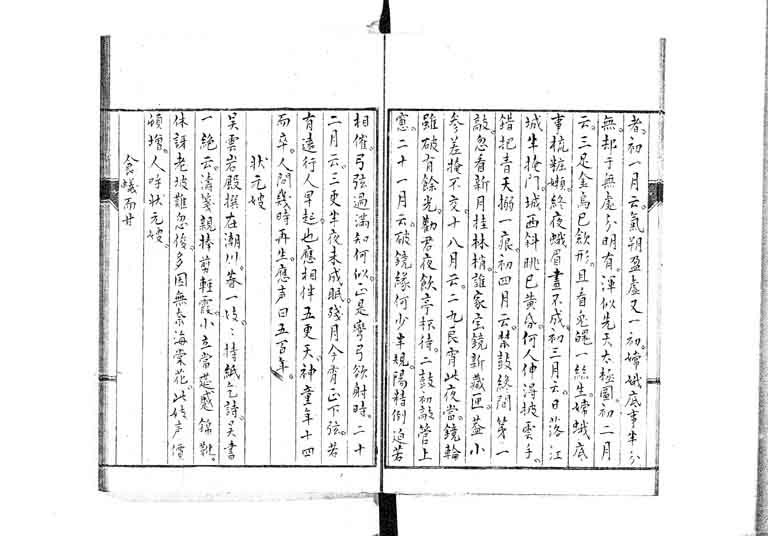 者初一月云氣朔盈虛又一初嫦娥底事半分
無却于無處分明有渾似先天太極圖初二月
云三足金烏已歛形且看兎魄一絲生嫦娥底
事梳粧嬾終夜蛾眉畫不成初三月云日落江
城半掩門城西斜眺已黃昏何人伸淂披雲手
錯把青天搦一痕初四月云禁鼓終聞第一
敲忽看新月挂林梢誰家宝鏡新藏匣盖小
参差掩不交十八月云二九良宵此夜當鏡輪
雖破有餘光勸君夜飲亭杯待二鼓初敲管上
窓二十一月云破鏡緣何少半規陽精倒迫若
相催弓弦過滿知何似正是彎弓欲射時二十
二月云三更半夜未成眠殘月今宵正下弦若
有遠行人早起也應相伴五更天神童年十四
而卒人問幾時再生應声曰五百年
狀元婈
吴雲岩殿撰在潮川暮一婈婈持紙乞詩吴書
一絶云濤箋親捧剪輕霞小立當筵感錦靴
休訝老坡難忽俊多因無奈海棠花此婈声價
頓增人呼狀元婈
食蟻而甘